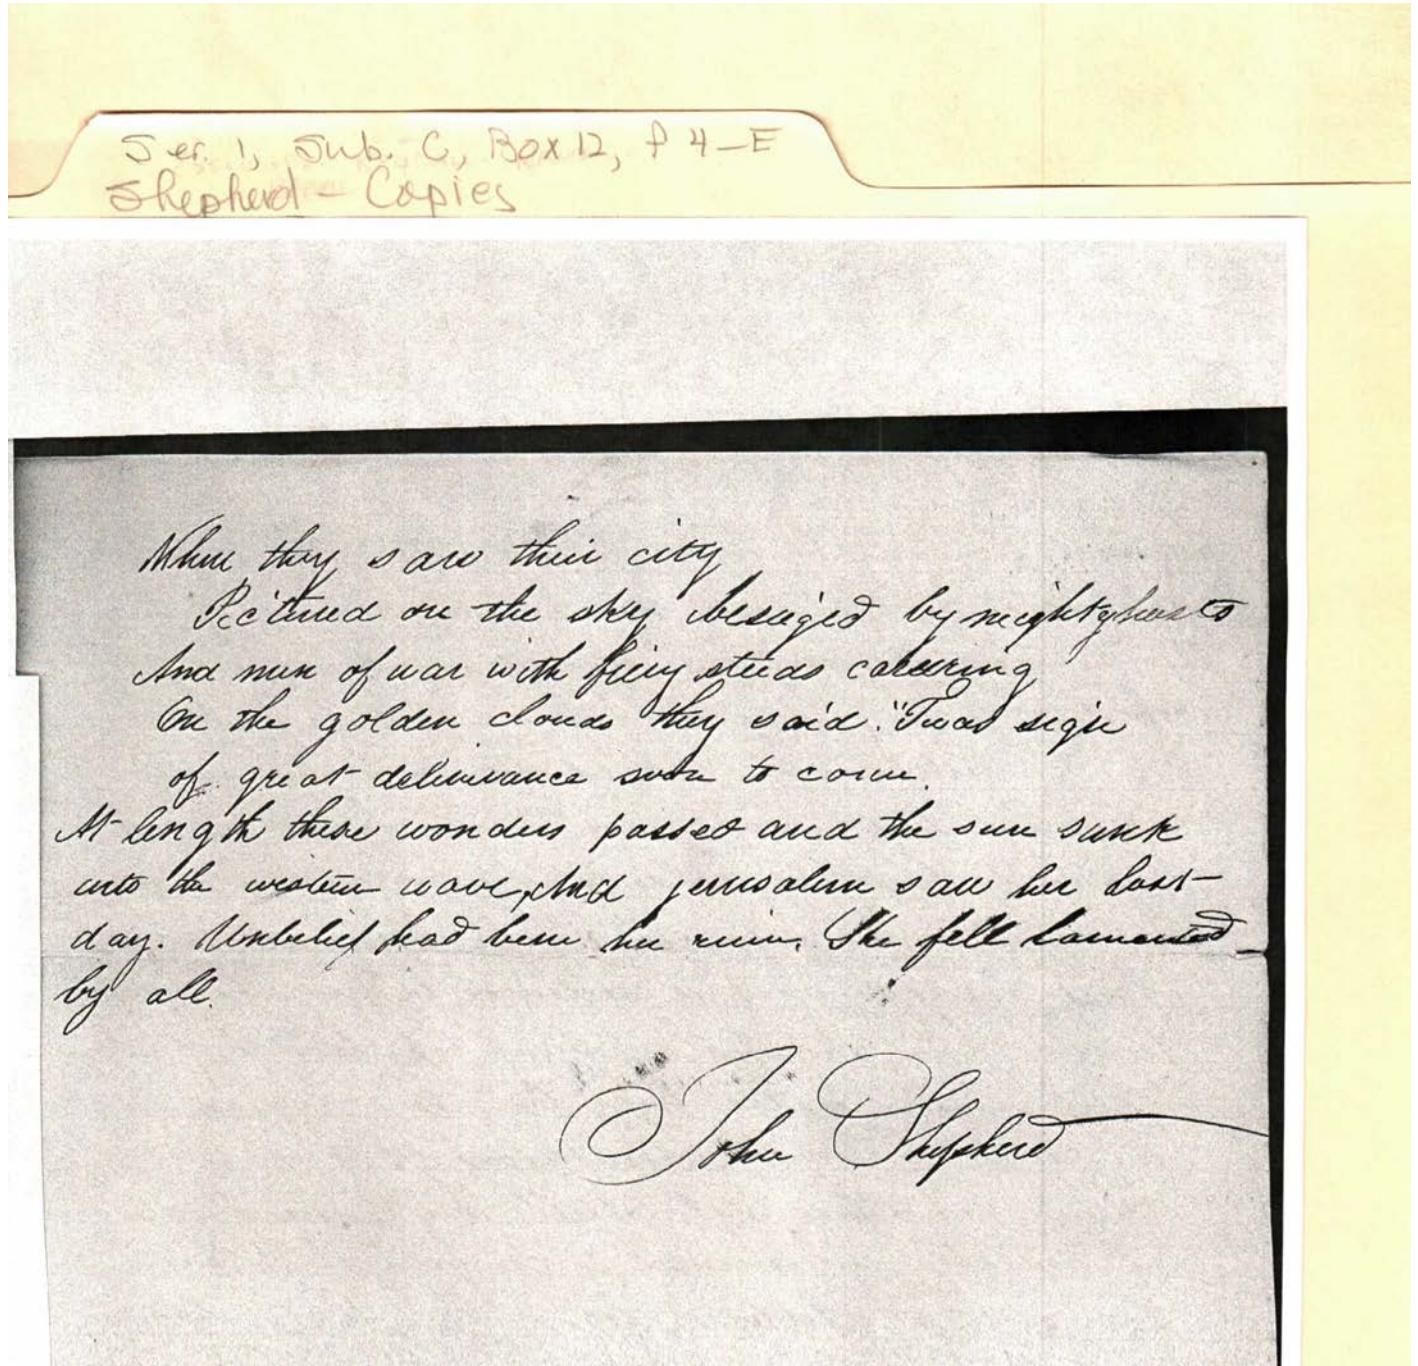 Ser. 1, Sub. C, Box 12, f 4-E
Shepherd - Copies
When they saw their city
Pictured on the sky besieged by mighty hosts
And men of war with fiery steeds careering
On the golden clouds they said "Twas sign
of great deliverance soon to come.
At length these wonders passed and the sun sunk
into the western wave, And jerusalem saw her last
day. Unbelief had been her ruin. She fell lamented
by all.
John Shepherd